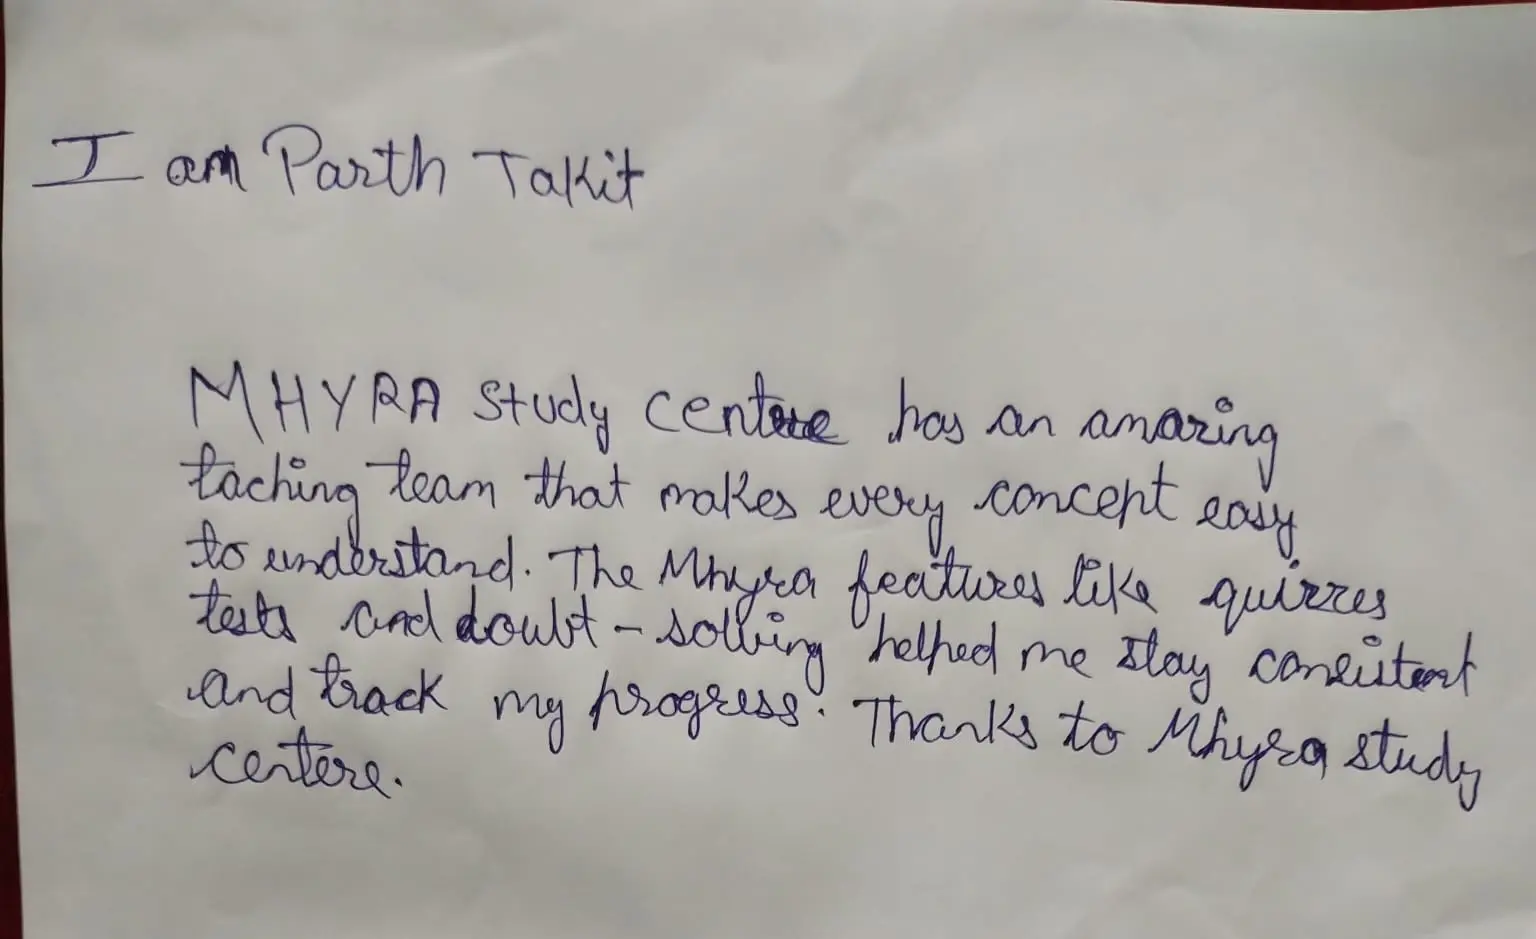 I am Parth Takit
MHYRA Study centre has an amazing
taching team that makes every concept easy
to understand. The Mhyra features like quizzes
tests and doubt-solving helped me stay consistent
and track my progress. Thanks to Mhyra study
centere.